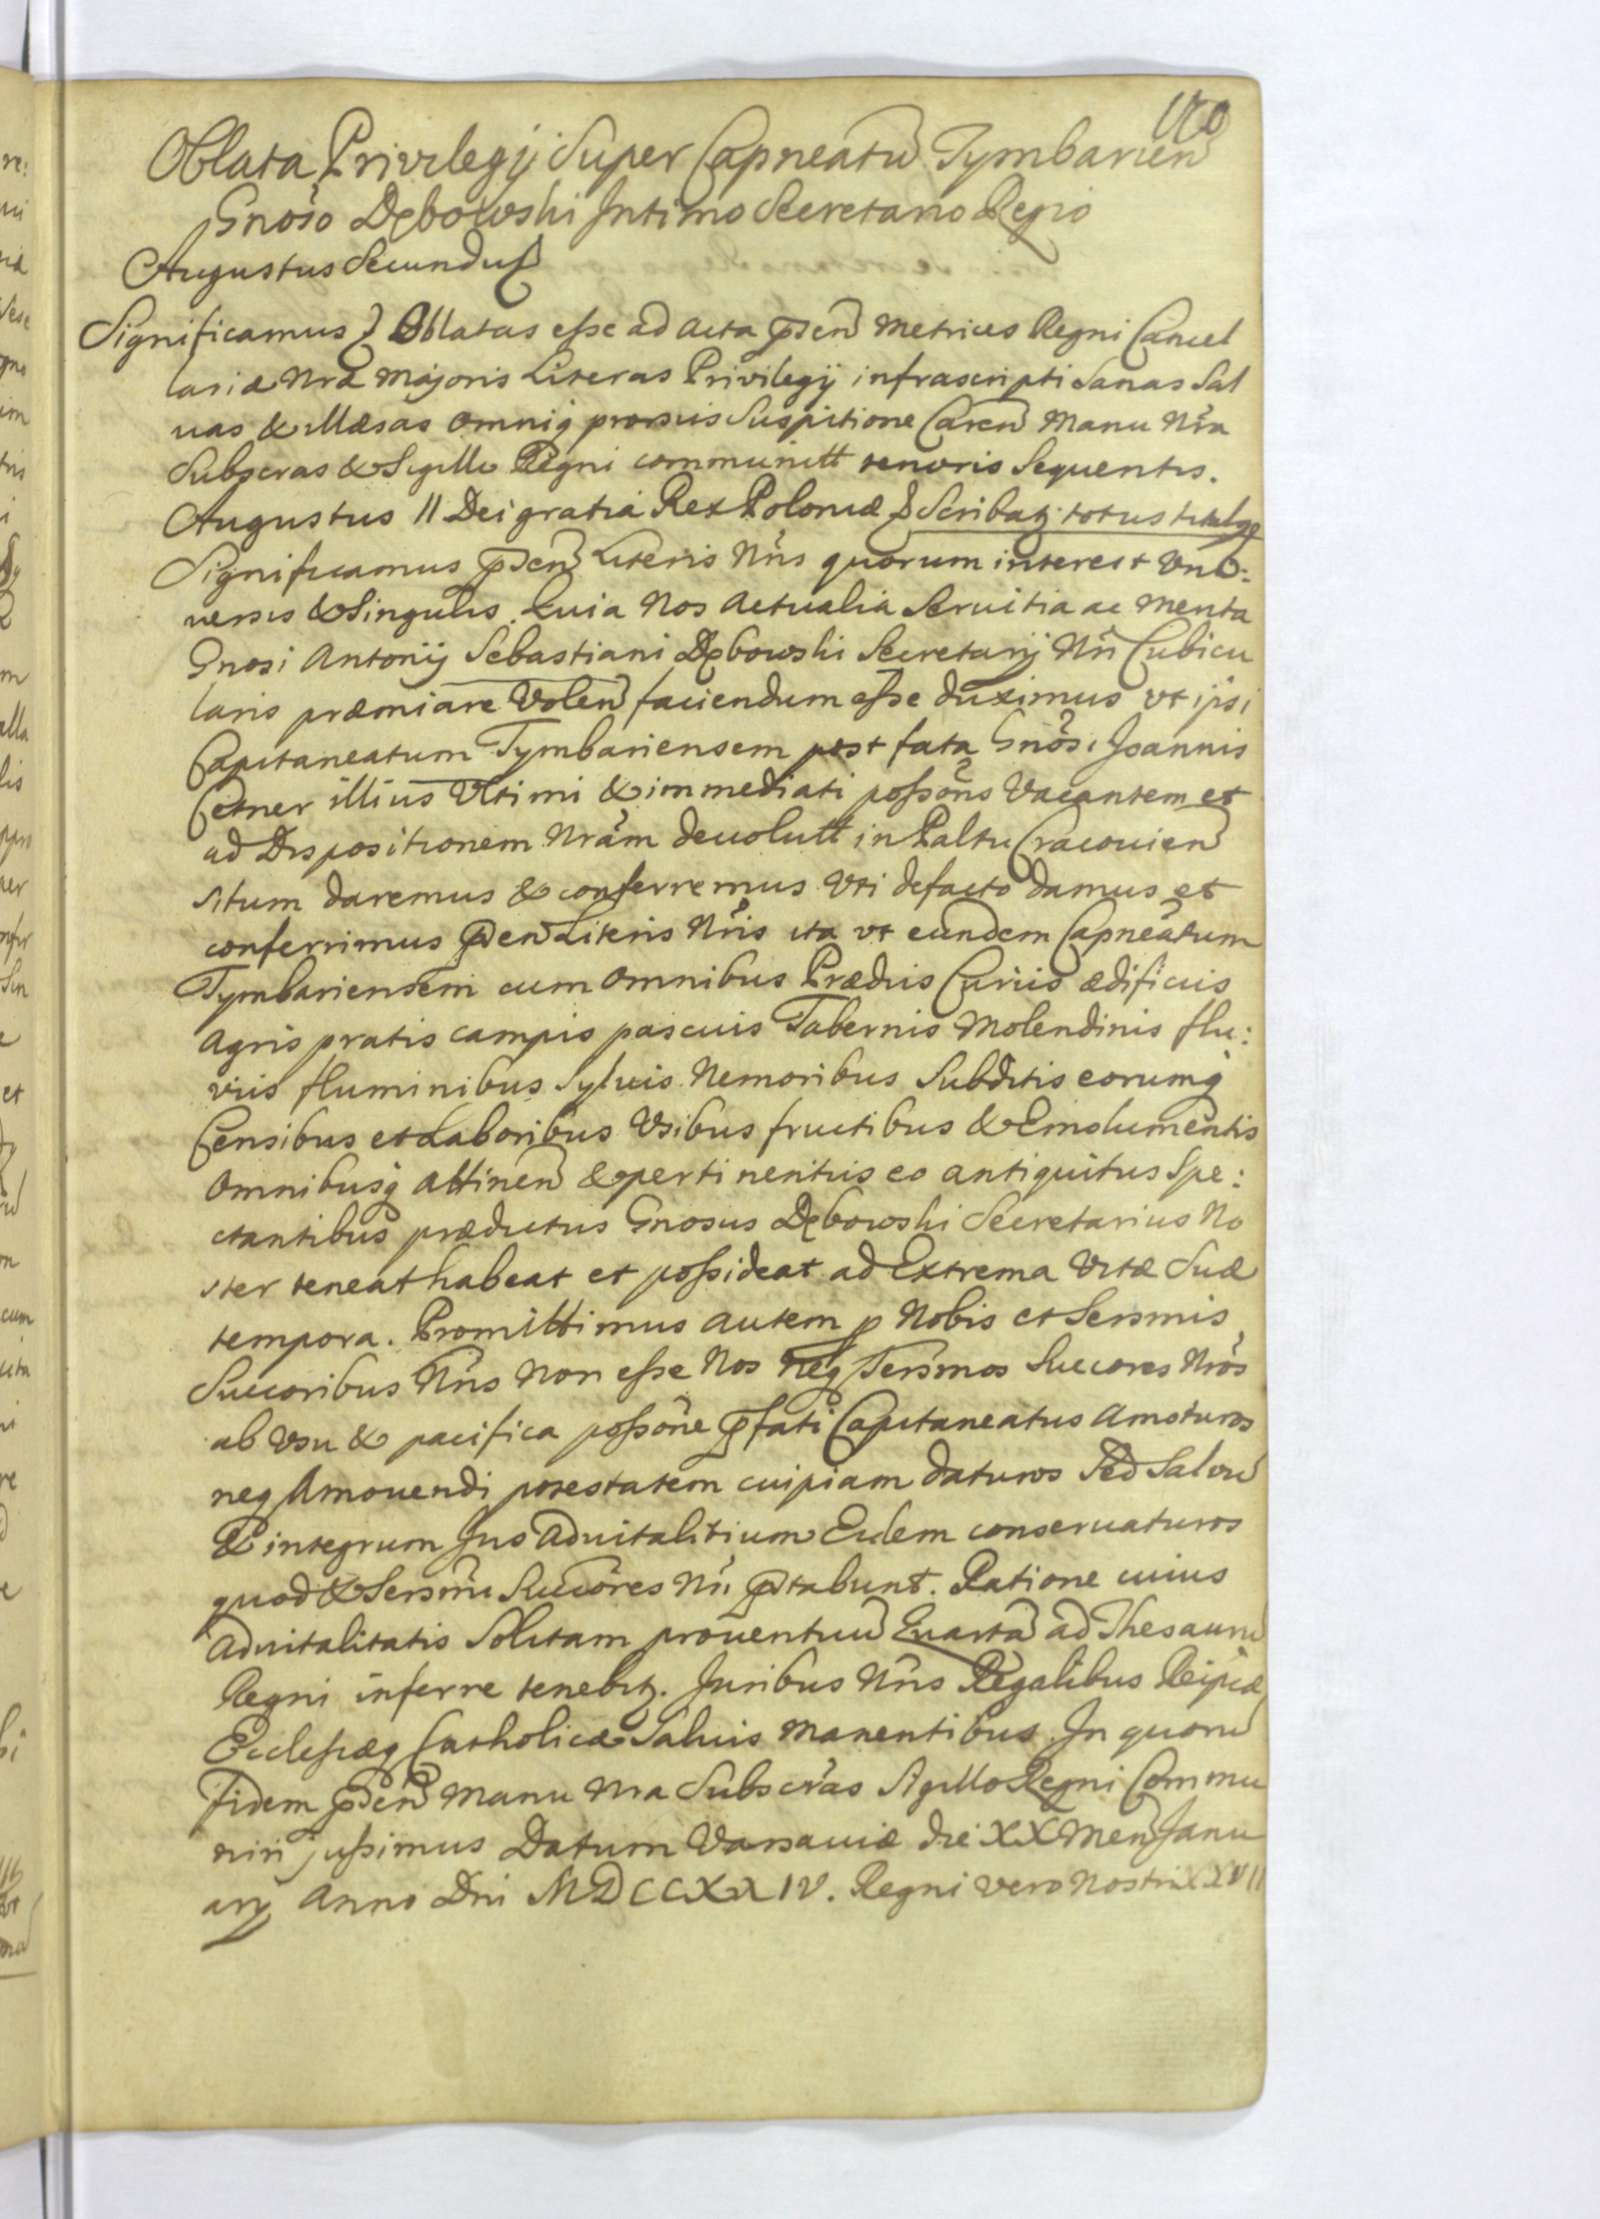 Oblata Privilegij Super Capneatū Tymbarien
Gnoso Dębowski Intimo Secretario Regio
Augustus Secundus
Significamus & Oblatas esse ad Acta pñsen Metrices Regni Cancel
lariæ Nræ Majoris Literas Privilegij infrascripti Sanas Sal
uas & illæsas omniq prorsus Suspitione Caren Manu Nra
Subscras & Sigillo Regni communitt tenoris Sequentis.
Augustus II Dei gratia Rex Poloniæ & Scribatz totus titulq
Significamus pñsen Literis Nris quorum interest Uni:
uersis & Singulis. Quia Nos Actualia Seruitia ac Merita
Gnosi Antonij Sebastiani Dębowski Secretarij Nri Cubicu
laris præmiare Volen faciendum esse duximus vt ipsi
Capitaneatum Tymbariensem post fata Gnosi Joannis
Cetner illius Vltimi & immediati possõns Vacantem et
ad Dispositionem Nram deuolutt in Palttu Cracouien
situm daremus & conferremus Vti defacto damus et
conferimus pñsen Literis Nris ita vt eundem Capneatum
Tymbariensem cum Omnibus Prædiis Curiis ædificiis
Agris pratis campis pascuis Tabernis Molendinis flu:
viis fluminibus Syluis Nemoribus Subditis eorumq
Censibus et Laboribus Vsibus fructibus & Emolumentis
Omnibusq attinen & pertinentiis eo antiquitus Spe:
ctantibus prædictus Gnosus Dębowski Secretarius No
ster teneat habeat et possideat ad Extrema Vitæ Suæ
tempora. Promittimus autem p Nobis et Sersmis
Succoribus Nris Non esse Nos neq Sersmos Succores Nros
ab Vsu & pacifica possõne pfati Capitaneatus Amoturos
neq Amouendi potestatem cuipiam daturos Sed Saluū
& integrum Jus Aduitalitium Eidem conseruaturos
quod & Sersmi Succores Nri pstabunt. Ratione cuius
Aduitalitatis Solitam prouentuū Quartā ad Thesaurū
Regni inferre tenebitz. Juribus Nris Regalibus Reipcæ
Ecclesiæq Catholicæ Saluis Manentibus. In quorū
fidem pñsen Manu Nra Subscras Sigillo Regni Commu
niri jussimus Datum Varsauiæ die XX Men Janu
arij Anno Dni MDCCXXIV. Regni vero Nostri XXVII